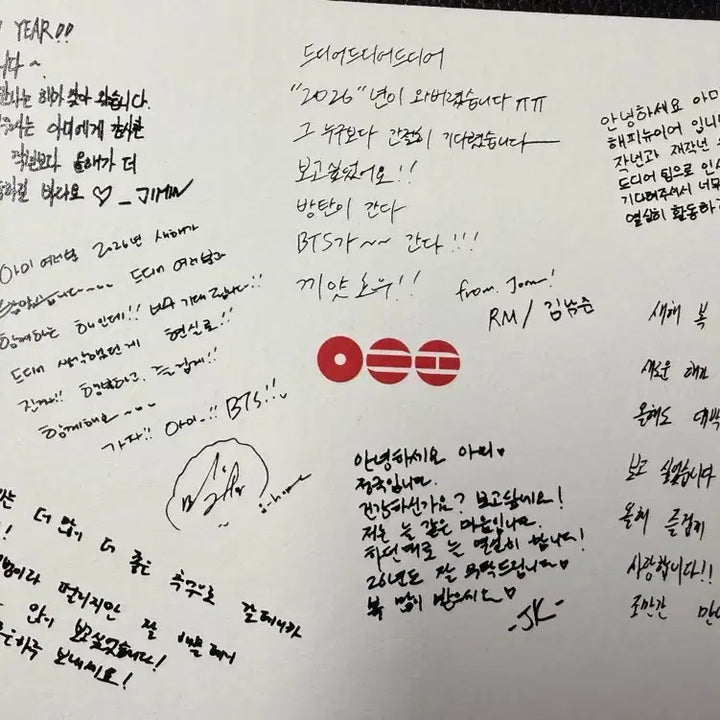 YEAR!!
니다~
해가 찾아 왔습니다.
아미에게 감사한
작년보다 올해가 더
바라요 ♡ _ JIMIN
아미 여러분 2026년 새해가
드디어 여러분과
함께하는 해인데!! 너무 기대됩니다!!
드디어 생각했던게 현실로!!
진짜!! 행복하고, 즐겁게!!
함께해요~~~
가자!! 아미..!! BTS!!
j-hope
더 많이 더 좋은 추구로 갈테니까
떨리지만 잘 해볼테니
많이 보고싶었습니다!
하루 보내세요!
드디어드디어드디어
"2026"년이 와버렸습니다 ㅠㅠ
그 누구보다 간절히 기다렸습니다
보고싶었어요!!
방탄이 간다
BTS가~~ 간다!!!
끼얏호우!!
from. Joon!
RM / 김남준
안녕하세요 아미♥
정국입니다.
건강하신가요? 보고싶네요!
저는 늘 같은 마음입니다.
하던대로 늘 열심히 합니다!
26년도 잘 부탁드립니다♥
복 많이 받으시오♥
-JK-
안녕하세요 아미
해피뉴이어 입니
작년과 재작년
드디어 팀으로 인
기다려주셔서 너무
열심히 활동하
새해 복
새로운 해
올해도 대박
보고 싶었습니다
올해 즐겁게
사랑합니다!!
조만간 만